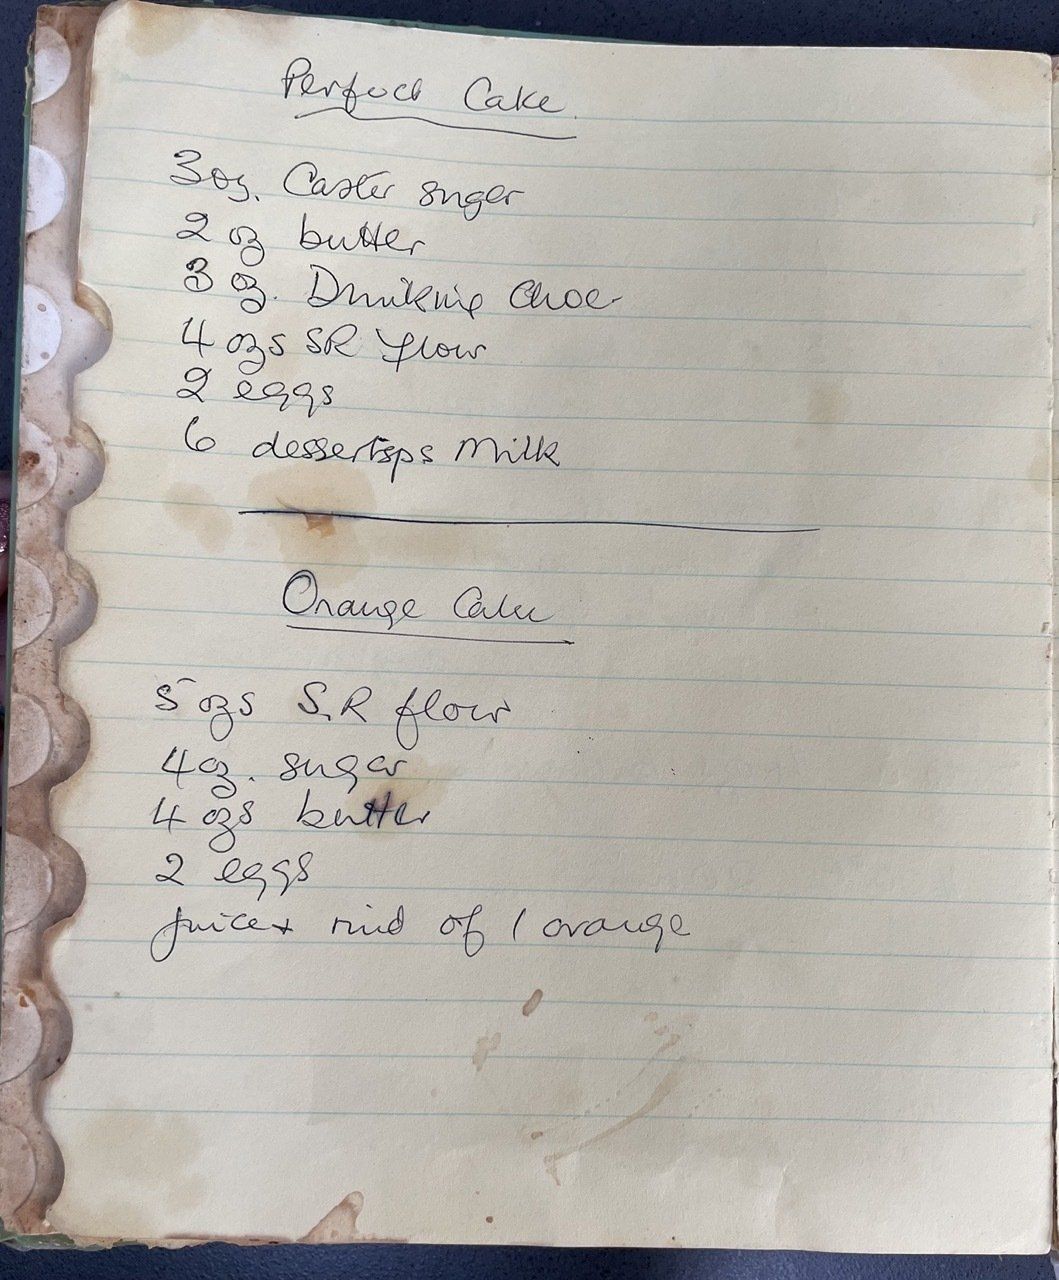 Perfect Cake
3oz. Caster sugar
2 oz butter
3 oz. Drinking Choc
4 ozs SR flour
2 eggs
6 dessertsps Milk
Orange Cake
5 ozs S.R flour
4oz. sugar
4 ozs butter
2 eggs
juice + rind of 1 orange